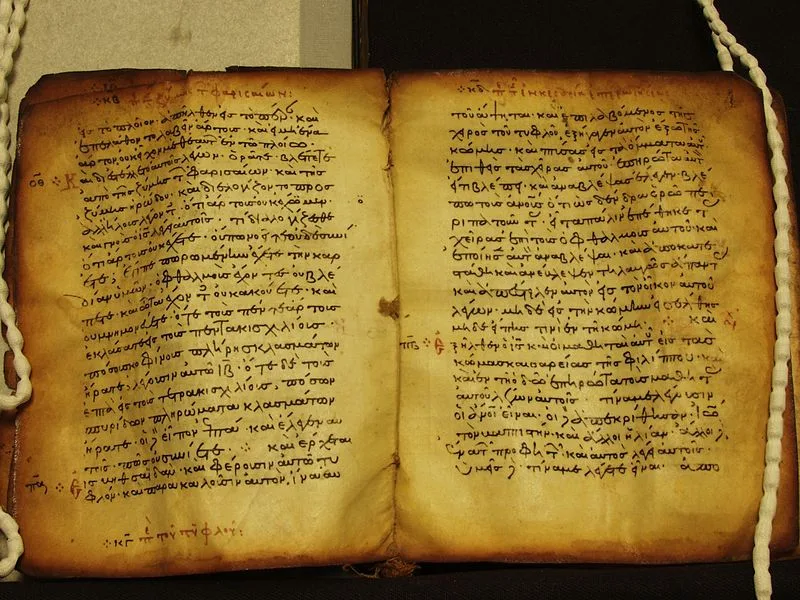 κβ τ φαρισαίων:
εἰς τὸ πλοῖον ἀπῆλθεν εἰς τὸ πέραν· καὶ
ἐπελάθοντο λαβεῖν ἄρτους· καὶ εἰ μὴ ἕνα
ἄρτον οὐκ εἶχον μεθ' ἑαυτ ἐν τῷ πλοίῳ·
καὶ διεστέλλετο αὐτοῖς λέγων· ὁρᾶτε βλέπετε
ἀπὸ τῆς ζύμης τ φαρισαίων· καὶ τῆς
ζύμης ἡρώδου· καὶ διελογίζοντο πρὸς
ἀλλήλους λέγοντ· ὅτι ἄρτους οὐκ ἔχομεν·
καὶ γνοὺς ὁ ις λέγει αὐτοῖς· τί διαλογίζεσθε
ὅτι ἄρτους οὐκ ἔχετε· οὔπω νοεῖτε οὐδὲ συνί
ετε· ἔτι πεπωρωμένην ἔχετε τὴν καρ
δίαν ὑμῶν· ὀφθαλμοὺς ἔχοντες οὐ βλέ
πετε· καὶ ὦτα ἔχοντ οὐκ ἀκούετε· καὶ
οὐ μνημονεύετε· ὅτε τοὺς πέντε ἄρτους
ἔκλασα εἰς τοὺς πεντακισχιλίους·
πόσους κοφίνους πλήρεις κλασμάτων
ἤρατε· λέγουσιν αὐτῶ ιβ· ὅτε δὲ τοὺς
ἑπτὰ εἰς τοὺς τετρακισχιλίους· πόσων
σπυρίδων πληρώματα κλασμάτων
ἤρατε· οἱ δὲ εἶπον ἑπτά· καὶ ἔλεγεν αὐ
τοῖς· πῶς οὐ συνίετε· καὶ ἔρχεται
εἰς βηθσαϊδάν· καὶ φέρουσιν αὐτῶ τυ
φλόν· καὶ παρακαλοῦσιν αὐτὸν, ἵνα αὐ
κγ τοῦ τυφλοῦ:
κδ
τοῦ ἅψηται· καὶ ἐπιλαβόμενος τῆς
χειρὸς τοῦ τυφλοῦ, ἐξήγαγεν αὐτὸν ἔξω τῆς
κώμης· καὶ πτύσας εἰς τὰ ὄμματα αὐτοῦ
ἐπιθεὶς τὰς χεῖρας αὐτοῦ ἐπηρώτα αὐτὸν
εἴ τι βλέπει· καὶ ἀναβλέψας ἔλεγεν· βλέ
πω τοὺς ἀνους ὅτι ὡς δένδρα ὁρῶ πε
ριπατοῦντ· εἶτα πάλιν ἐπέθηκε τ
χεῖρας ἐπὶ τοὺς ὀφθαλμοὺς αὐτοῦ· καὶ
ἐποίησεν αὐτ ἀναβλέψαι· καὶ ἀποκατε
στάθη καὶ ἀνέβλεψεν τηλαυγῶς ἅπαντ
καὶ ἀπέστειλεν αὐτὸν εἰς τὸν οἶκον αὐτοῦ
λέγων· μηδὲ εἰς τὴν κώμην εἰσέλθης
μηδὲ εἴπης τινὶ ἐν τῆ κώμη· καὶ
ἐξῆλθεν ὁ ις καὶ οἱ μαθηταὶ αὐτ εἰς τὰς
κώμας καισαρείας τῆς φιλίππου· καὶ
καὶ ἐν τῆ ὁδῶ ἐπηρώτα τοὺς μαθητ
αὐτοῦ λέγων αὐτοῖς· τίνα με λέγουσιν
οἱ ἀνοι εἶναι· οἱ δὲ ἀπεκρίθησαν· ἰω
τὸν βαπτιστήν· καὶ ἄλλοι ἠλίαν· ἄλλοι δὲ
ἕνα τ προφητ· καὶ αὐτὸς λέγει αὐτοῖς·
ὑμεῖς δὲ τίνα με λέγετε εἶναι· ἀπο